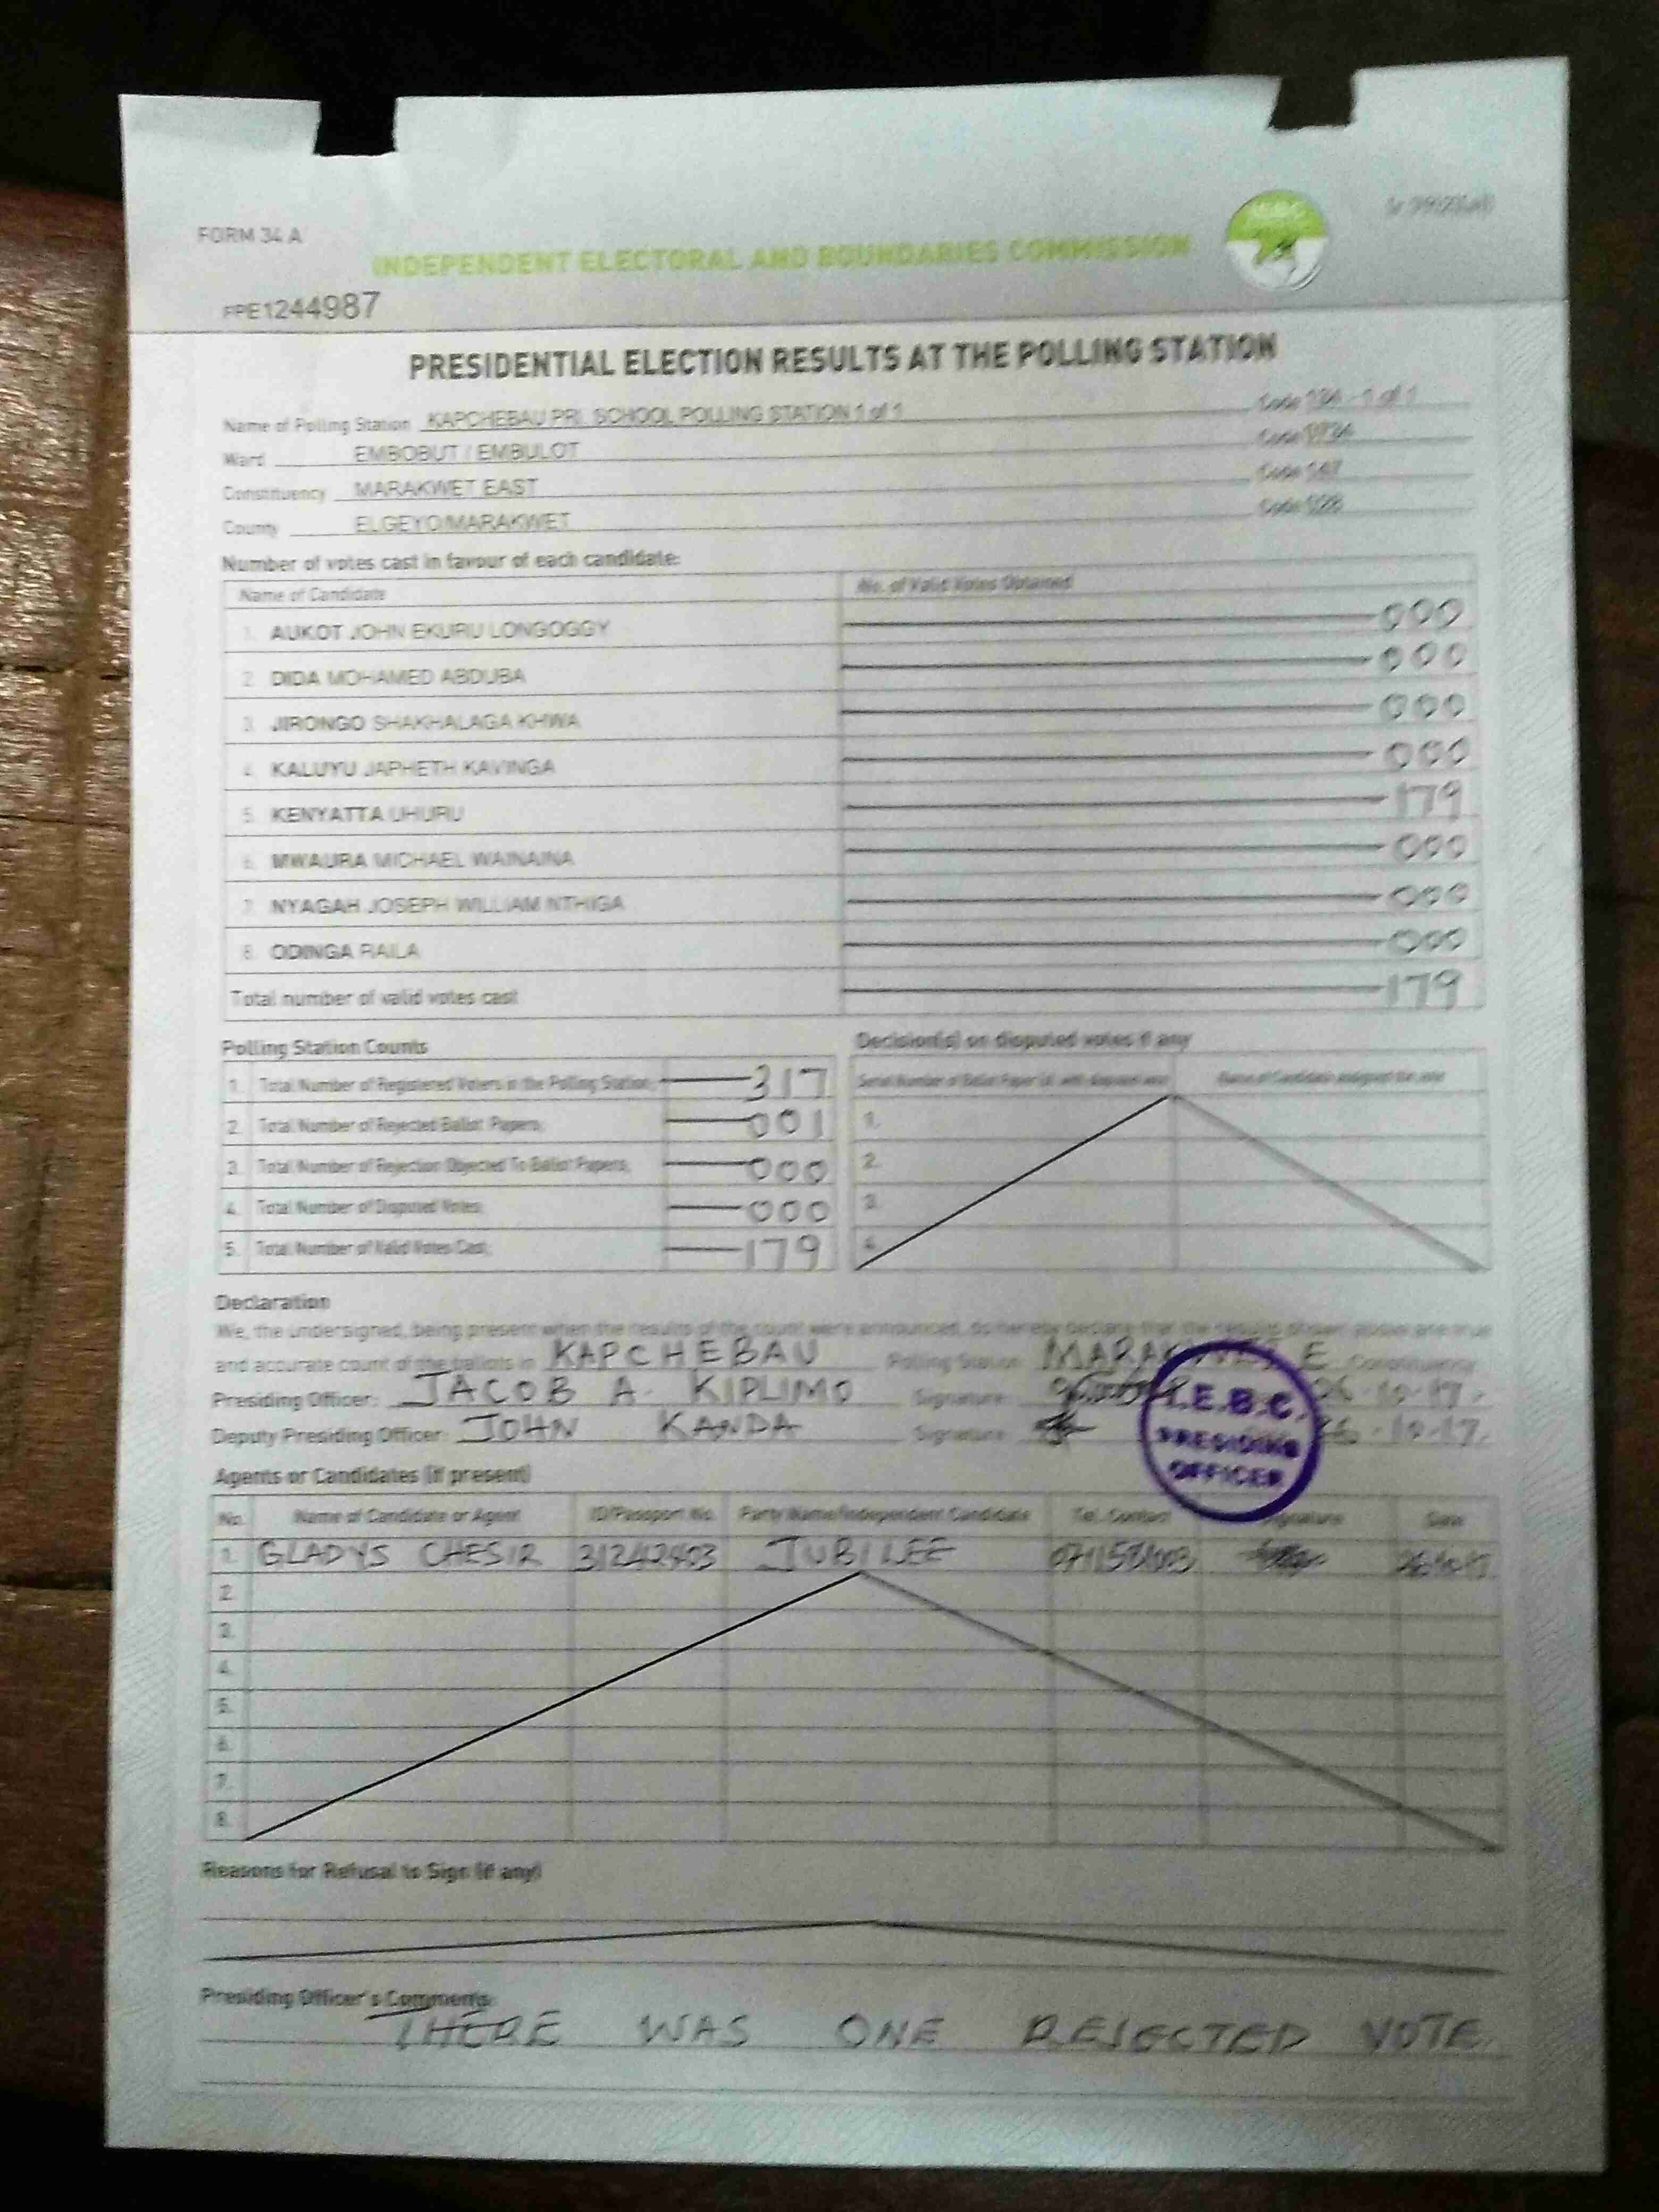 FORM 34 A
INDEPENDENT ELECTORAL AND BOUNDARIES COMMISSION
FPE1244987
PRESIDENTIAL ELECTION RESULTS AT THE POLLING STATION
Name of Polling Station KAPCHEBAU PRI. SCHOOL POLLING STATION 1 of 1 Code 1 of 1
Ward EMBOBUT / EMBULOT Code
Constituency MARAKWET EAST Code 147
County ELGEYO/MARAKWET Code 028
Number of votes cast in favour of each candidate:
Name of Candidate No. of Valid Votes Obtained
1. AUKOT JOHN EKURU LONGOGGY 000
2. DIDA MOHAMED ABDUBA 000
3. JIRONGO SHAKHALAGA KHWA 000
4. KALUYU JAPHETH KAVINGA 000
5. KENYATTA UHURU 179
6. MWAURA MICHAEL WAINAINA 000
7. NYAGAH JOSEPH WILLIAM NTHIGA 000
8. ODINGA RAILA 000
Total number of valid votes cast 179
Polling Station Counts
1. Total Number of Registered Voters in the Polling Station; 317
2. Total Number of Rejected Ballot Papers; 001
3. Total Number of Rejection Objected To Ballot Papers; 000
4. Total Number of Disputed Votes; 000
5. Total Number of Valid Votes Cast; 179
Decision(s) on disputed votes if any
Serial Number of Ballot Paper (s) with disputed vote Name of Candidate assigned the vote
1.
2.
3.
4.
Declaration
We, the undersigned, being present when the results of the count were announced, do hereby declare that the results shown above are true
and accurate count of the ballots in KAPCHEBAU Polling Station MARAKWET E Constituency
Presiding Officer: JACOB A. KIPLIMO Signature 26.10.17.
Deputy Presiding Officer: JOHN KANDA Signature 26.10.17.
I.E.B.C.
PRESIDING
OFFICER
Agents or Candidates (if present)
No. Name of Candidate or Agent ID/Passport No. Party Name/Independent Candidate Tel. Contact Signature Date
1. GLADYS CHESIR JUBILEE
2.
3.
4.
5.
6.
7.
8.
Reasons for Refusal to Sign (if any)
Presiding Officer's Comments
THERE WAS ONE REJECTED VOTE.